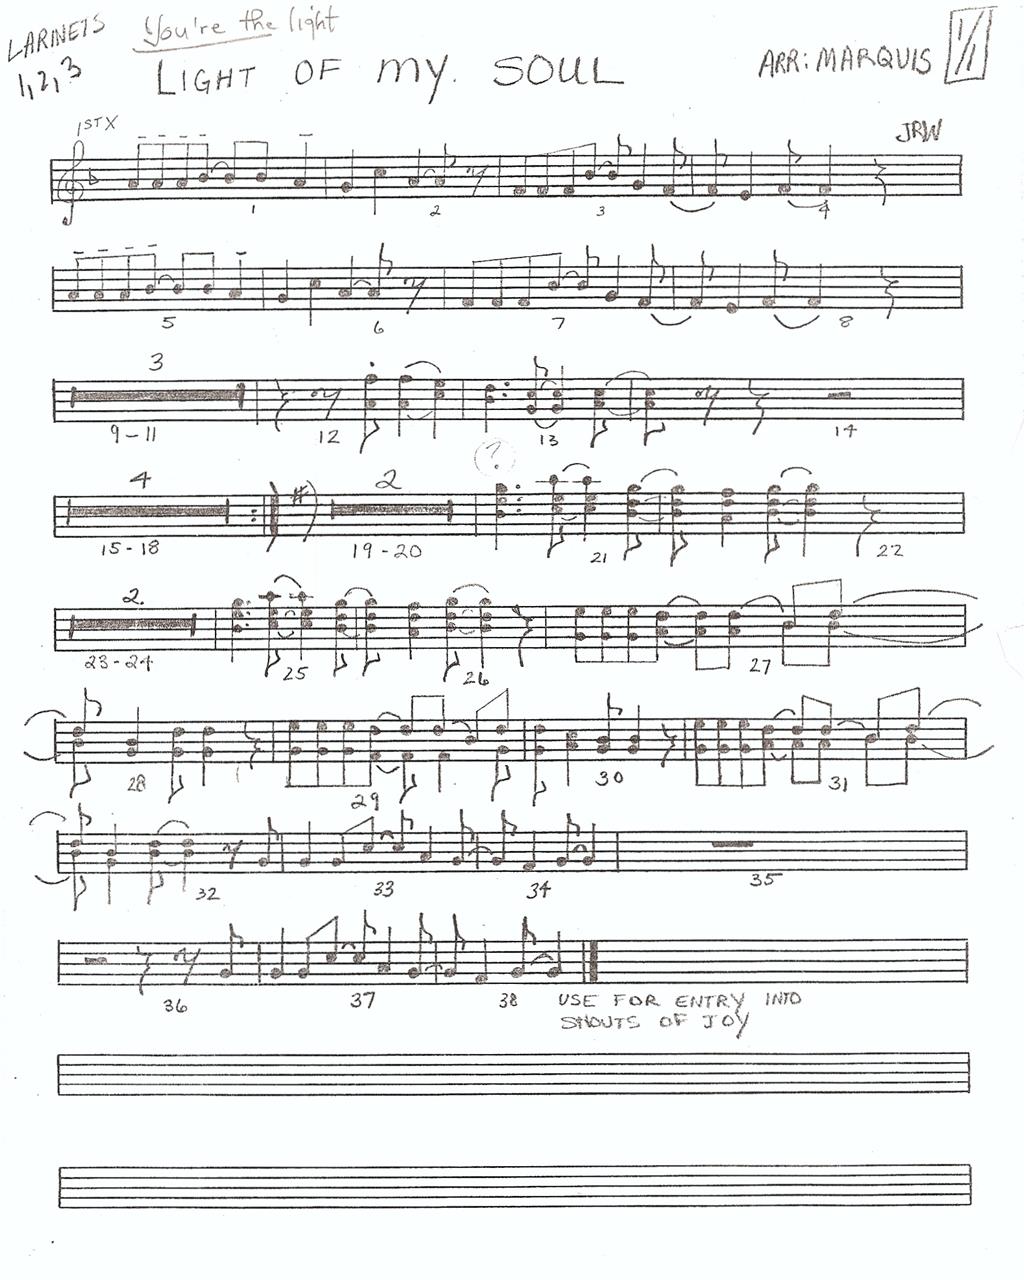 LARINETS You're the light
1, 2, 3 LIGHT OF MY SOUL ARR: MARQUIS 1/1
1ST X JRW
1 2 3 4
5 6 7 8
3
9-11 12 13 14
?
4 2
15-18 19-20 21 22
2.
23-24 25 26 27
28 29 30 31
32 33 34 35
36 37 38 USE FOR ENTRY INTO
SHOUTS OF JOY